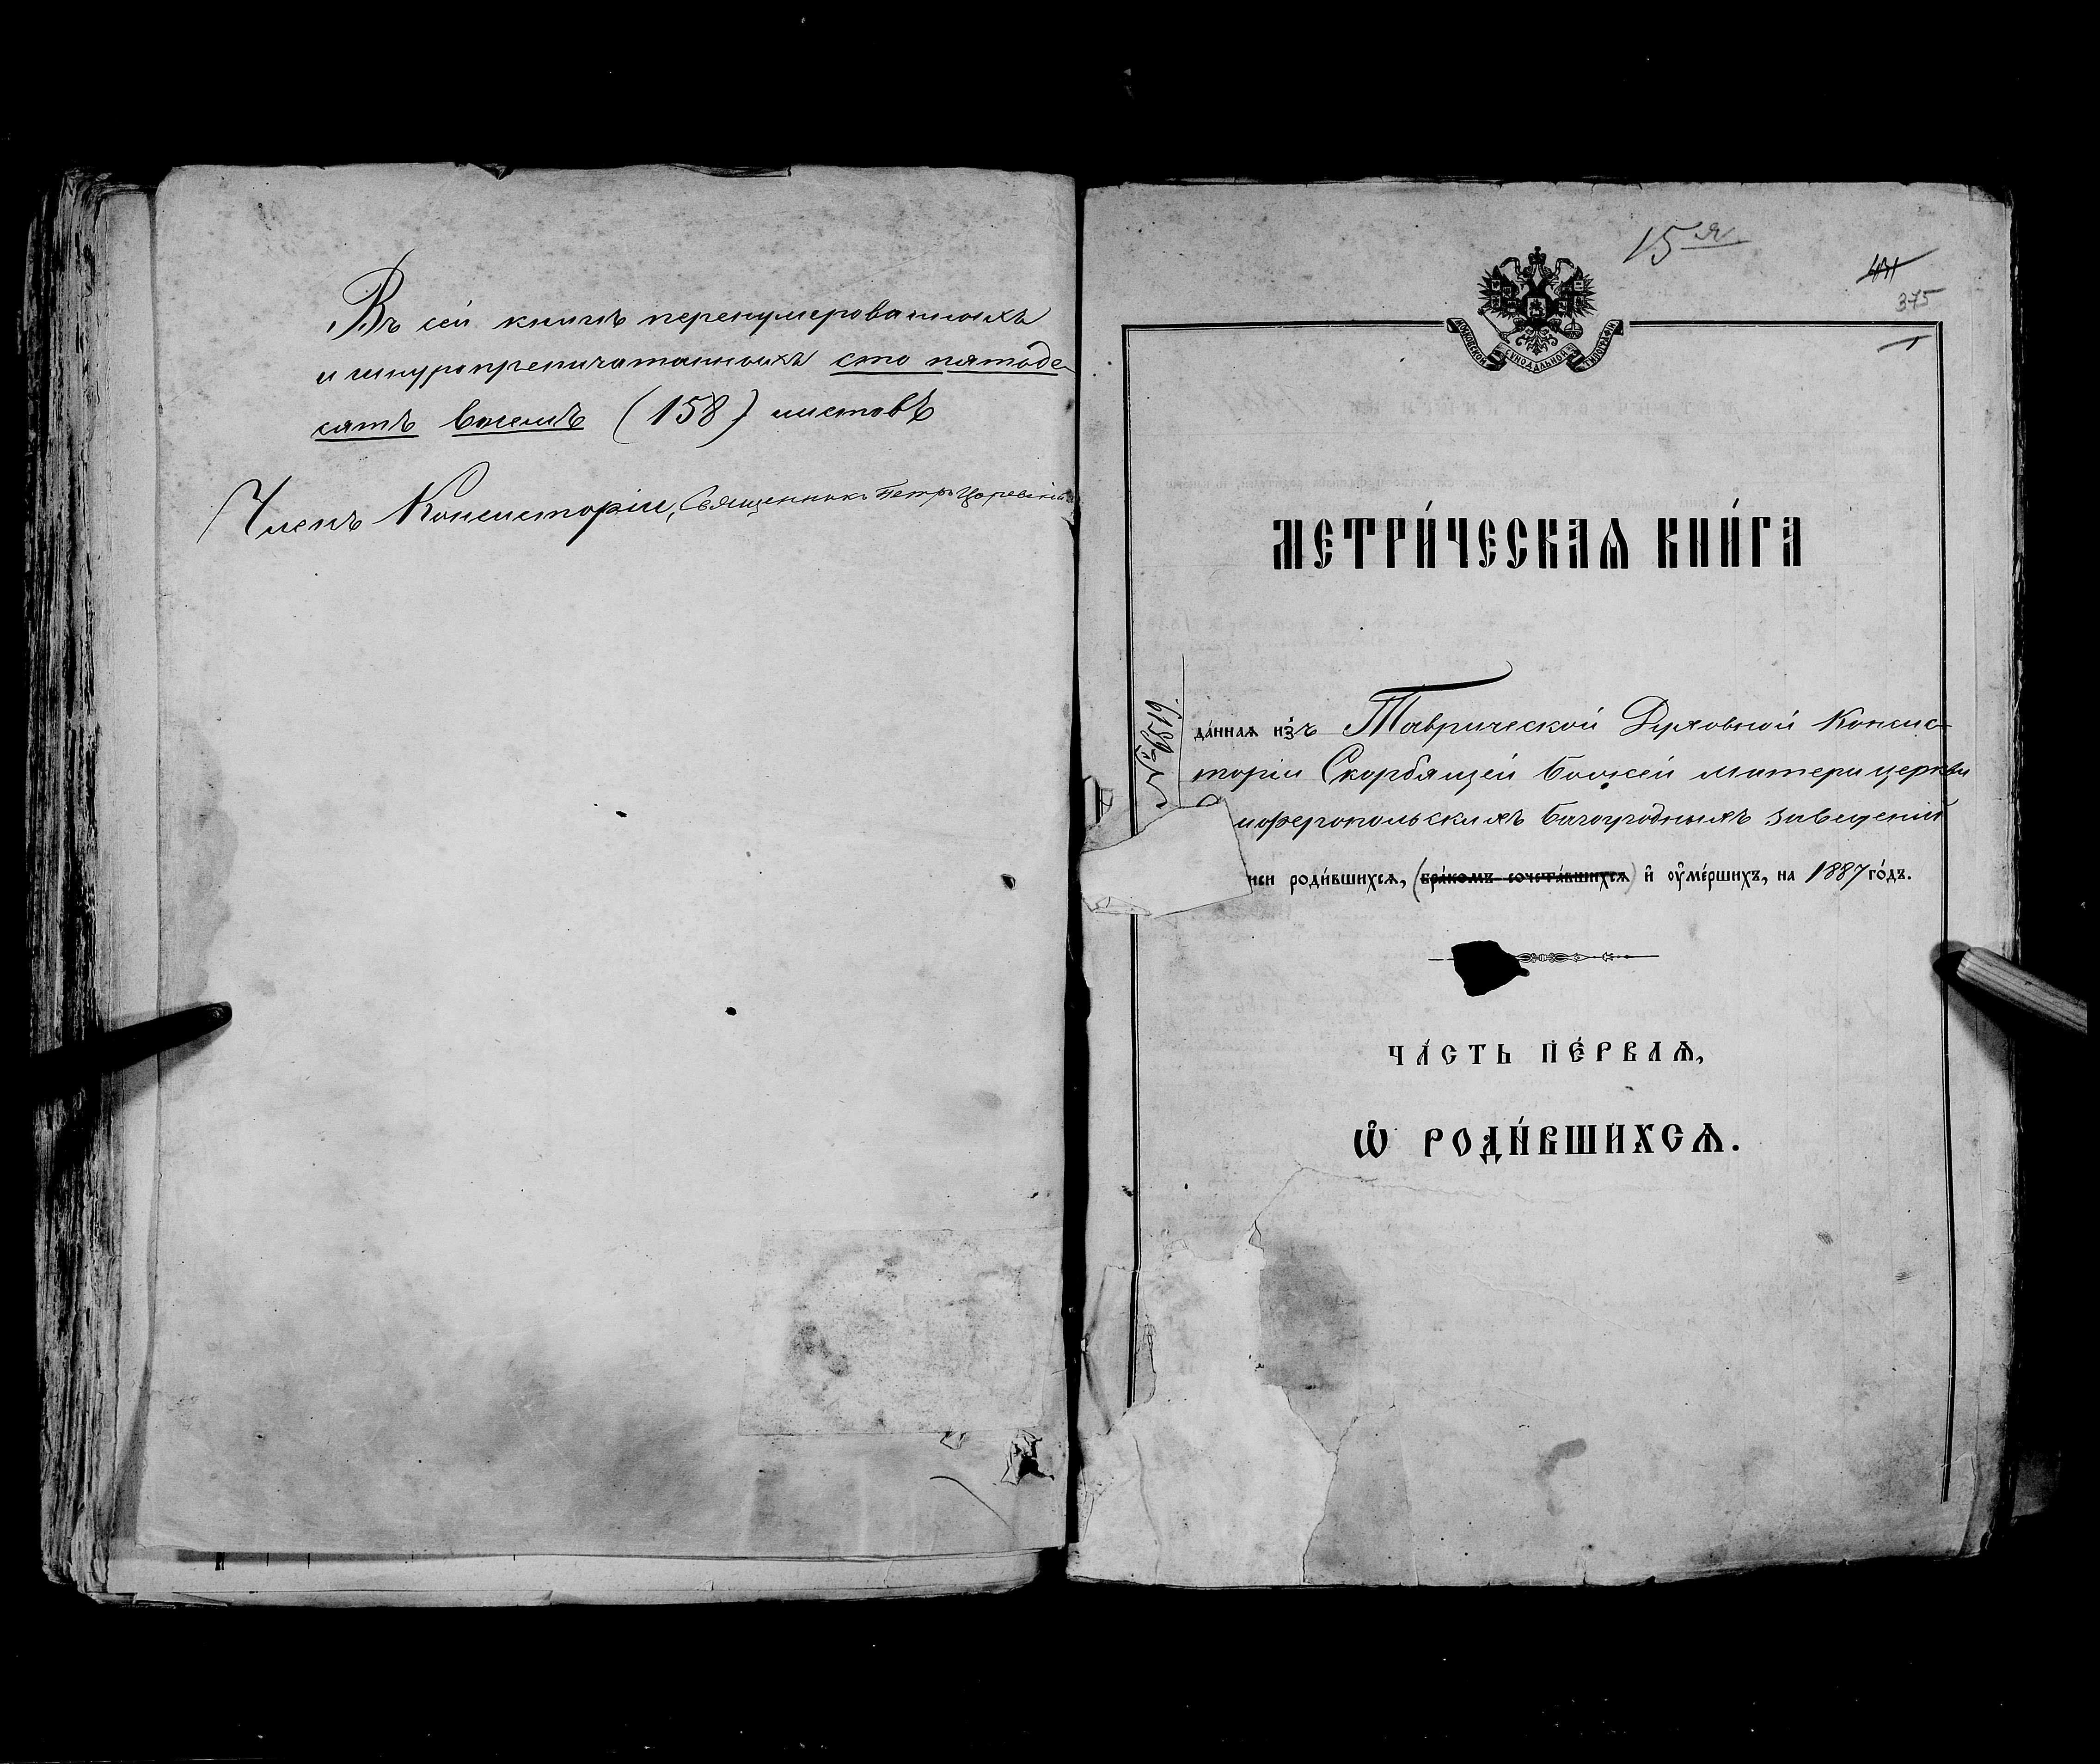 Въ сей книгѣ перенумерованныхъ
и шнуропрепичатанныхъ сто пятьде-
сятъ восемъ (158) листовъ
Членъ Консисторіи, Священникъ Петръ
15я
375
1
МОСКОВСКОЙ СѴНОДАЛЬНОЙ ТИПОГРАФІИ
МЕТРИ́ЧЕСКАѦ КНИ́ГА
№ 6189
да́ннаѧ и҆зъ Таврической Духовной Консис-
торіи Скорбящей Божей Матери церкви
имферопольскихъ Богоугодныхъ заведеній
иси роди́вшихсѧ, (бра́комъ сочета́вшихсѧ) и҆ оу҆ме́ршихъ, на 1887 го́дъ.
ЧА́СТЬ ПЕ́РВАѦ,
Ѡ҆ РОДИ́ВШИХСѦ.